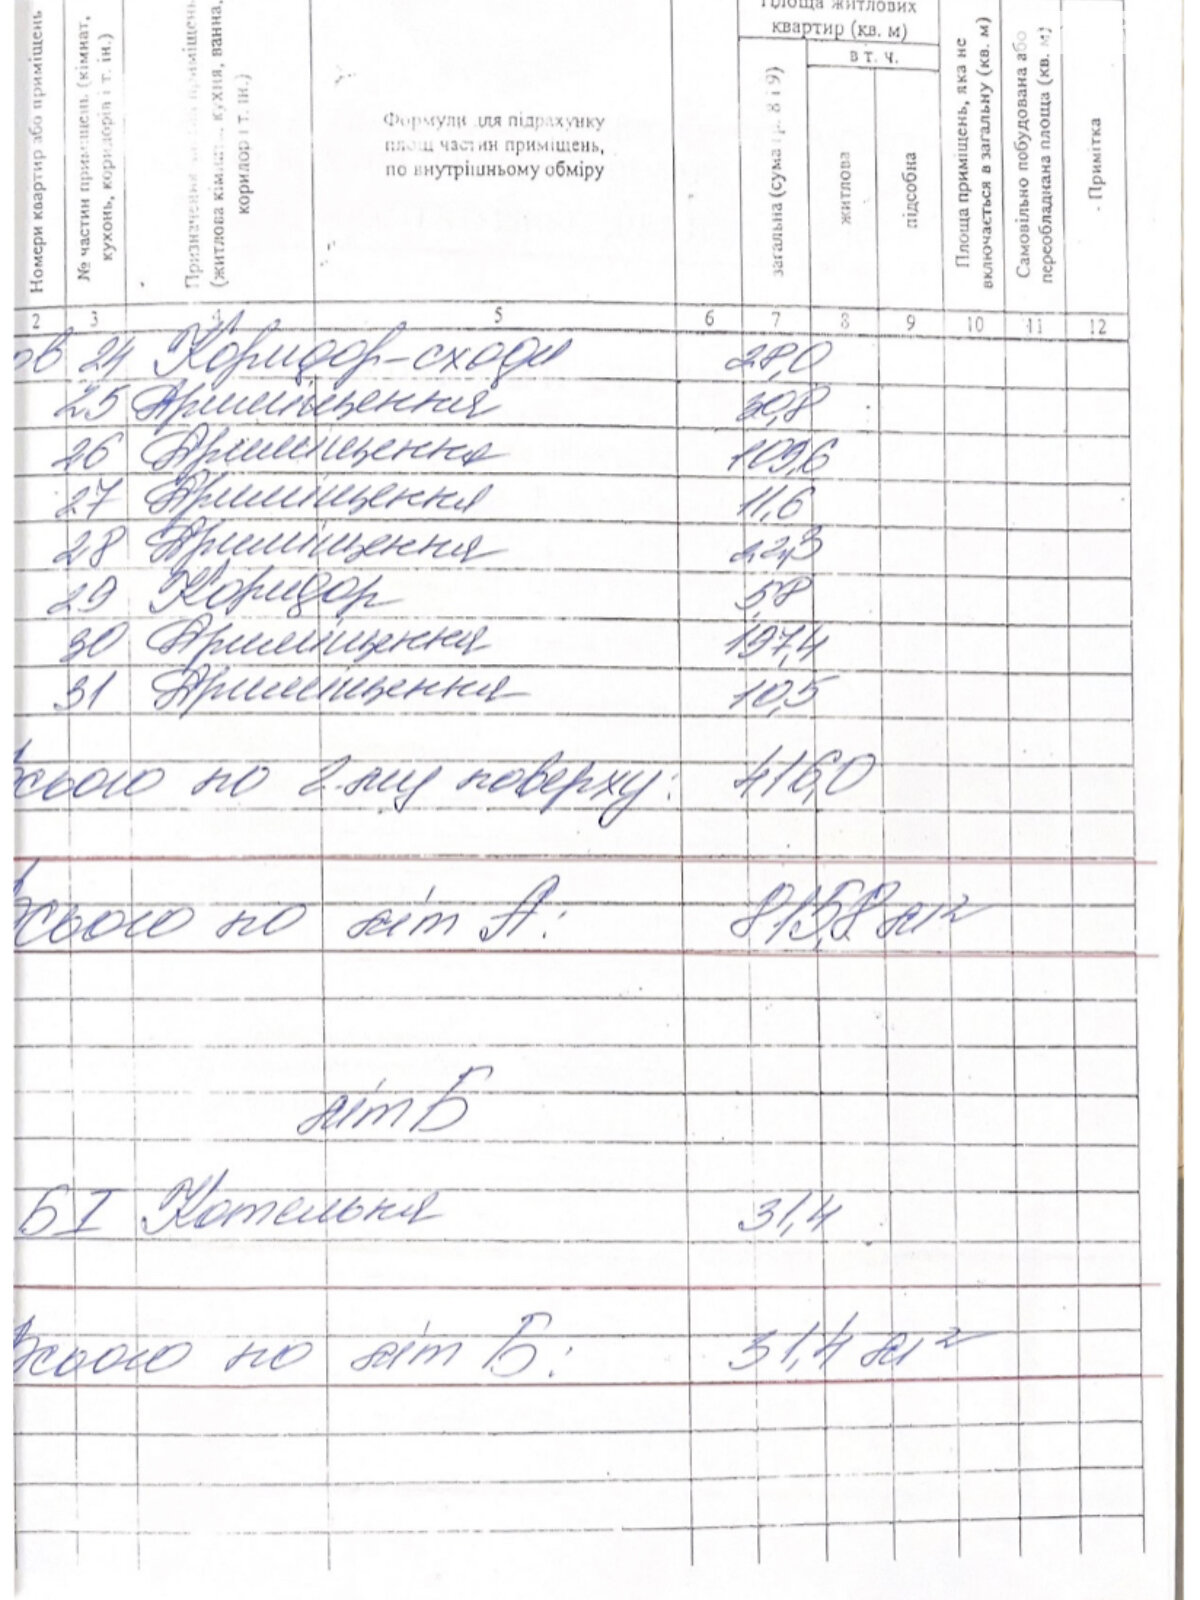 Номери квартир або приміщень
№ частин приміщень (кімнат,
кухонь, коридорів і т. ін.)
Призначення приміщень
(житлова кімната, кухня, ванна,
коридор і т. ін.)
Формули для підрахунку
площ частин приміщень,
по внутрішньому обміру
Площа житлових
квартир (кв. м)
в т. ч.
загальна (сума гр. 8 і 9)
житлова
підсобна
Площа приміщень, яка не
включається в загальну (кв. м)
Самовільно побудована або
переобладнана площа (кв. м)
Примітка
2 3 4 5 6 7 8 9 10 11 12
ов 24 Коридор-сходи 28,0
25 Приміщення 30,8
26 Приміщення 109,6
27 Приміщення 11,6
28 Приміщення 22,3
29 Коридор 5,8
30 Приміщення 197,4
31 Приміщення 10,5
Всього по 2-му поверху: 416,0
Всього по літ А: 815,8 м²
літ Б
Б I Котельня 31,4
Всього по літ Б: 31,4 м²